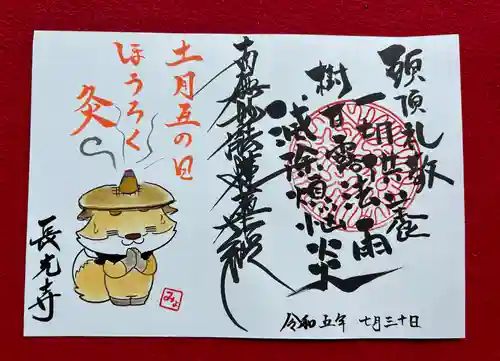 頭頂礼敬
一切供養
澍甘露法雨
滅除煩悩炎
令和五年 七月三十日
南無妙法蓮華経
土用丑の日
ほうろく
灸
長光寺